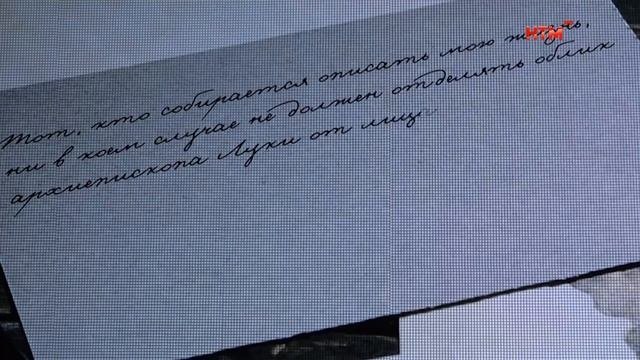 НТМ
Тот, кто собирается описать мою жизнь,
ни в коем случае не должен отделять облик
архиепископа Луки от лиц